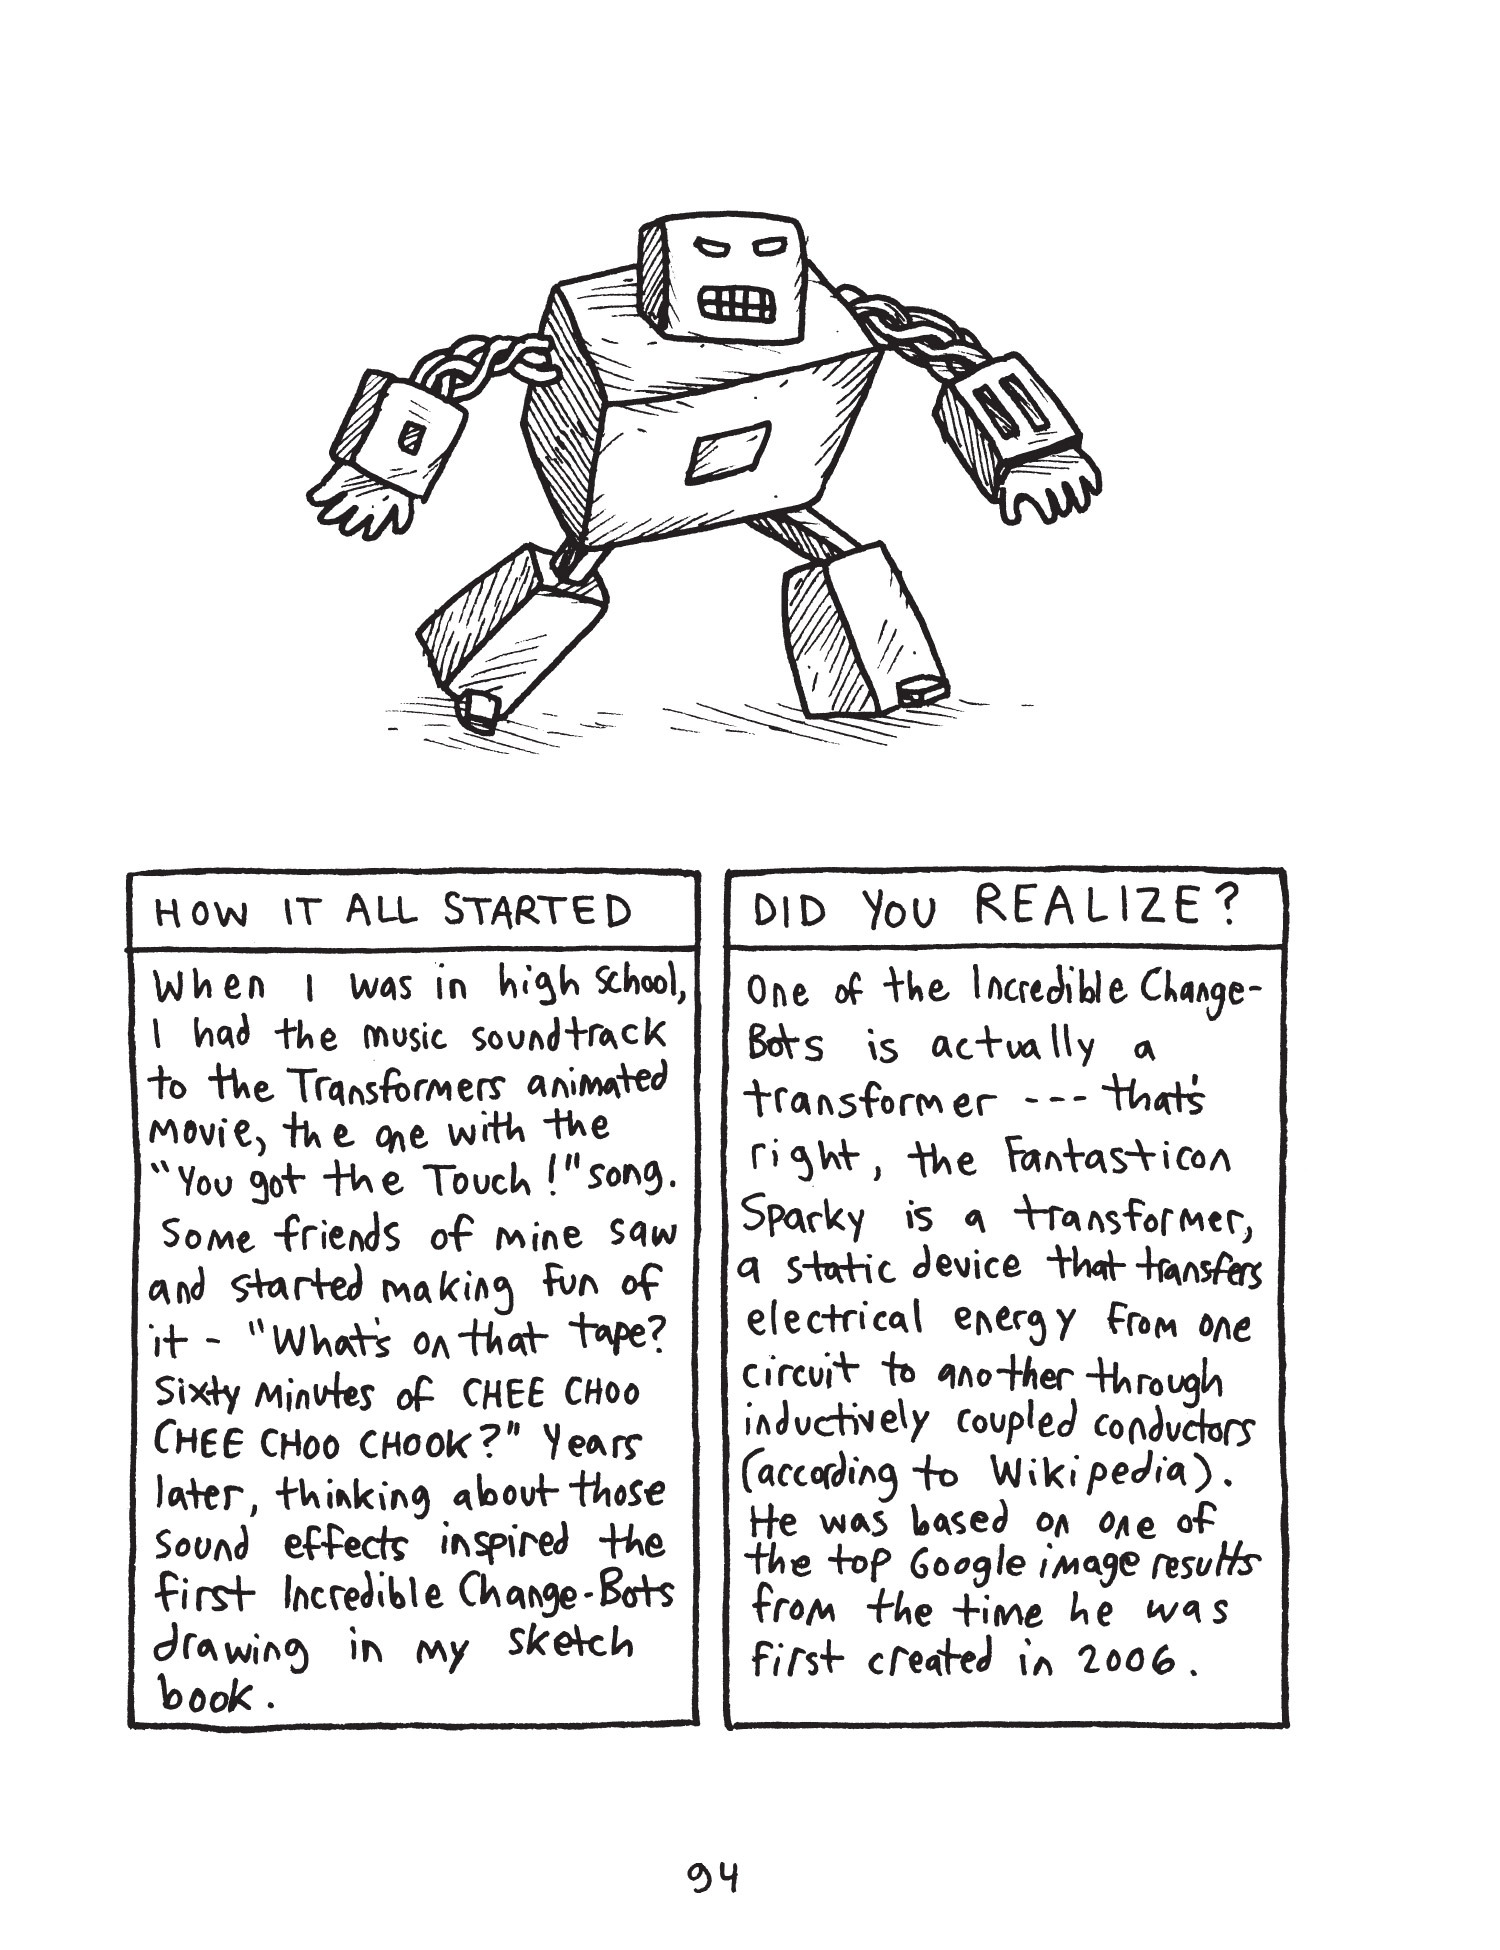 HOW IT ALL STARTED
When I was in high school,
I had the music soundtrack
to the Transformers animated
movie, the one with the
"You got the Touch!" song.
Some friends of mine saw
and started making fun of
it - "What's on that tape?
Sixty minutes of CHEE CHOO
CHEE CHOO CHOOK?" Years
later, thinking about those
sound effects inspired the
first Incredible Change-Bots
drawing in my sketch
book.
DID YOU REALIZE?
One of the Incredible Change-
Bots is actually a
transformer --- that's
right, the Fantasticon
Sparky is a transformer,
a static device that transfers
electrical energy from one
circuit to another through
inductively coupled conductors
(according to Wikipedia).
He was based on one of
the top Google image results
from the time he was
first created in 2006.
94